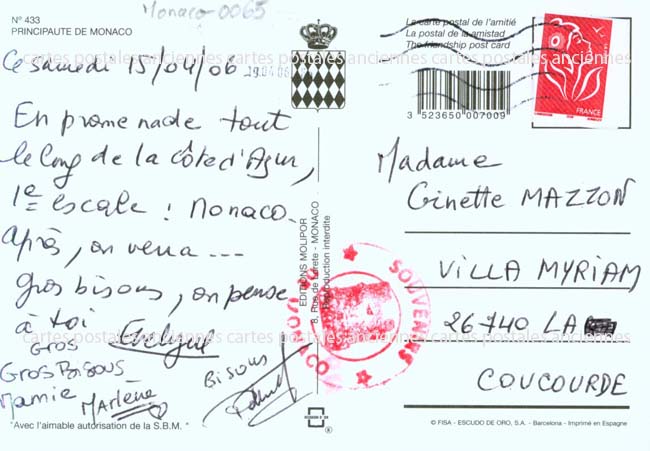 Monaco-0065
N° 433
PRINCIPAUTE DE MONACO
Ce samedi 15/04/06
En promenade tout
le long de la côte d'Azur,
1e escale : Monaco.
Après, on verra ...
Gros bisous, on pense
à toi
Gros
Gros Bisous
Mamie
Marlène
Bisous
"Avec l'aimable autorisation de la S.B.M. "
EDITIONS MOLIPOR
MONACO
Reproduction interdite
La carte postal de l'amitié
La postal de la amistad
The friendship post card
3 523650 007009
FRANCE
Madame
Ginette MAZZON
VILLA MYRIAM
26740 LA
COUCOURDE
SOUVENIRS
© FISA - ESCUDO DE ORO, S.A. - Barcelona - Imprimé en Espagne
cartes postales anciennes cartes postales anciennes cartes postales anciennes
cartes postales anciennes cartes postales anciennes cartes postales anciennes